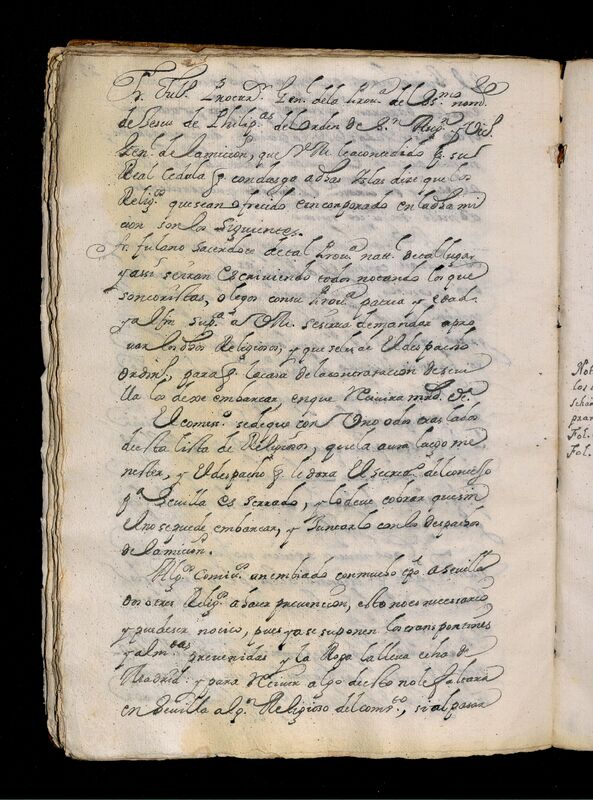 Fr. Ful.º Procur.r Gen. dela Prou.ª del SS.mo nom.e
de Jesus de Philip.as del Orden de S.n Aug.n y Vic.
Gen. de la mision, que V. M. le a concedido por su
Real Cedula q. con das go a dhas Islas dize que los
Relig.os que se an ofrecido e incorporado en la dha mi
cion son los siguientes.
Fr. fulano sacerdote de tal Prou.ª nat.l de tal lugar
y assi se iran escriviendo todos notando los que
son coristas, o legos con su Prou.ª patria y edad.
y al fin sup.ca a V. M. se sirva de mandar apro
var los dhos Religiosos, y que se les de el despacho
ordin.º, para q. la casa de la contratacion de Sevi
lla los dexe embarcar, en que recivira mrd. &c.
El comis.º se de que con uno o dos traslados
de esta lista de Religiosos, que la aura luego me
nester, y el despacho q. le dara el secret.º del consejo
p.ª Sevilla es serrado, y lo deve cobrar que sin
el no se puede embarcar, y juntarlo con los despachos
de la mision.
Alg.os Comis.os an embiado con mucho tpo. a Sevilla
dos o tres Relig.os a hacer prevencion, esto no es necessario
y puede ser nocivo, pues ya se suponen los transportines
y alm.das prevenidas y la Ropa la lleva echa de
Madrid: y para recivir algo de esto no le faltara
en Sevilla alg.n Religioso del comv.to, si al pasar
Not
los
schas
pran
Fol.
Fol.